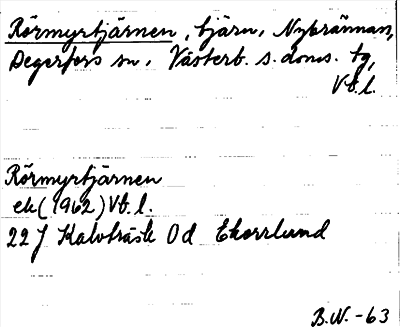 Rörmyrtjärnen, tjärn, Nybrännan,
Degerfors sn, Västerb. s. doms. tg,
Vb. l.
Rörmyrtjärnen
ek (1962) Vb. l.
22 J Kalvträsk 0d Ekorrlund
B.N. -63